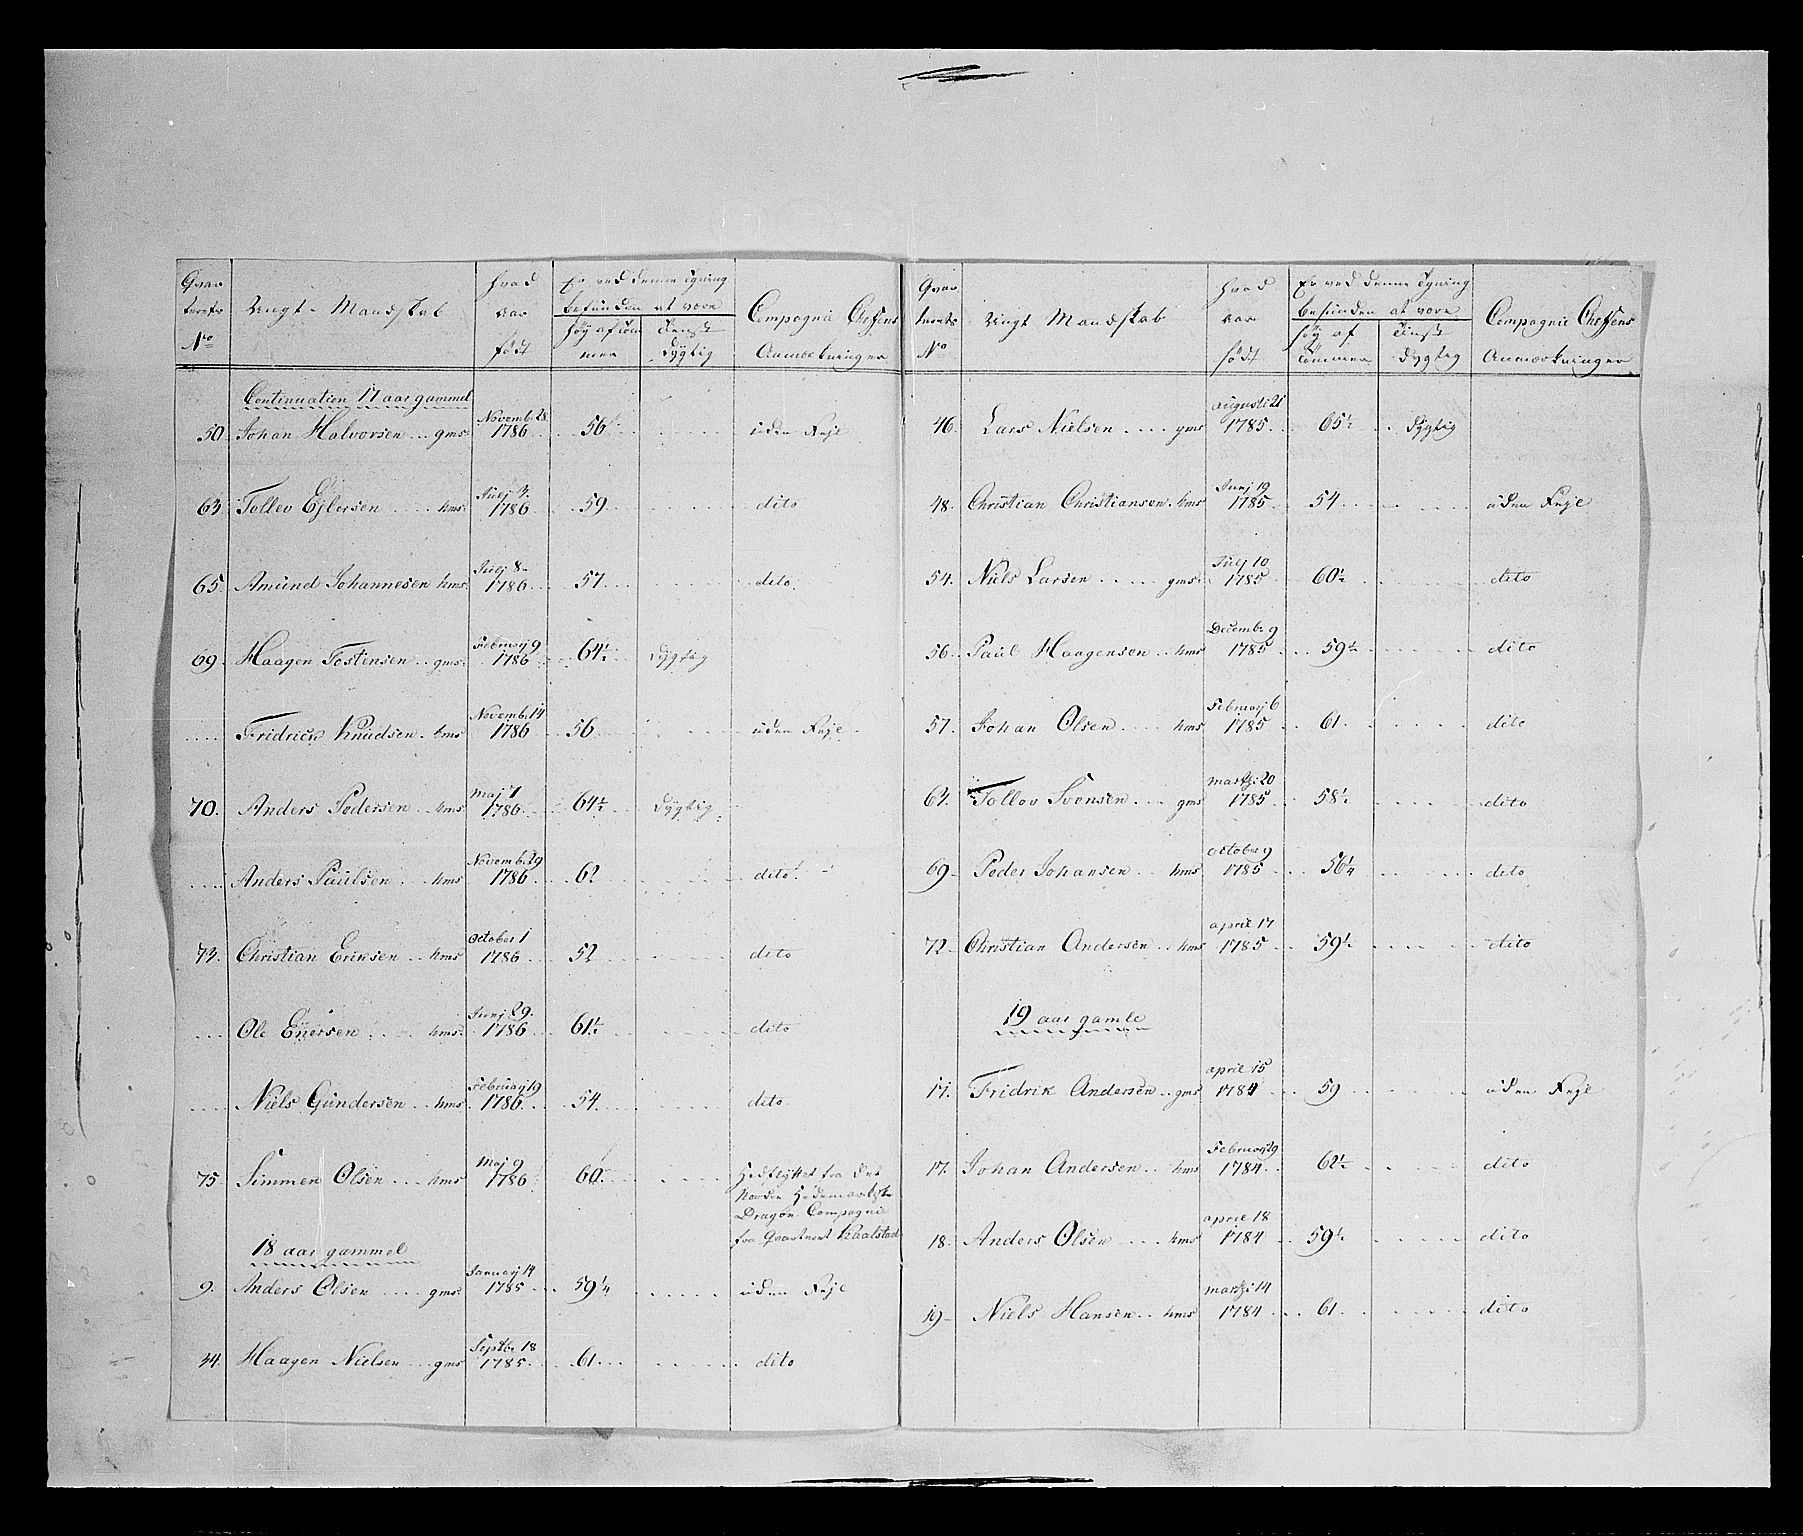 Qvar
terets
No
Ungt Mandskab
hvad
aar
født
Er ved denne Syning
befunden at være
høy af tom
mer
tienst
dygtig
Compagnie Cheffens
Anmærkninger
Continuation 17 aar gammel
50. Johan Halvorsen gms. Novemb. 28 1786 56 uden Feyl
63. Tollev Ejlersen hms. Julj 3. 1786 59 dito
65. Amund Johannesen hms. Julj 8 1786 57 dito
69. Haagen Tostinsen gms. Februarj 9 1786 64½ dygtig
Fridrick Knudsen hms Novemb. 14 1786 56 uden Feyl
70. Anders Pedersen hms Maj 7 1786 64½ dygtig
Anders Paulsen hms Novemb. 29 1786 62 dito
73. Christian Eriksen hms October 1 1786 52 dito
Ole Enersen hms. Junj 29. 1786 61½ dito
Niels Gundersen hms. Februarj 19 1786 54 dito
75. Simmen Olsen hms Maj 9 1786 60
Hedflyttet fra det
Nordre Hedemarkske
Dragon Compagnie
fra Qvarteret Kaalstad
18 aar gammel
9. Anders Olsen gms. Januarj 14 1785 59¼ uden Feyl
44. Haagen Nielsen gms Septbr 18 1785 61 dito
Qvar
terets
No
Ungt Mandskab
hvad
aar
født
Er ved denne Syning
befunden at være
høy af
tommer
tienst
dygtig
Compagnie Cheffens
Anmærkninger
46. Lars Nielsen gms augusti 21 1785 65½ dygtig
48. Christian Christiansen hms Junj 19 1785 54 uden Feyl
54. Niels Larsen gms. Julj 10 1785 60½ dito
56. Paul Haagensen hms Decemb. 9 1785 59½ dito
57. Johan Olsen hms Februarj 6 1785 61 dito
63. Tollev Svensen gms Martzi 20 1785 58½ dito
69. Peder Johansen hms October 9 1785 56¼ dito
72. Christian Andersen hms april 17 1785 59½ dito
19 aar gamle
17. Fridrik Andersen gms april 15 1784 59 uden Feyl
17. Johan Andersen hms Februarj 29 1784 62½ dito
18. Anders Olsen hms april 18 1784 59½ dito
19. Niels Hansen hms Martzi 14 1784 61 dito